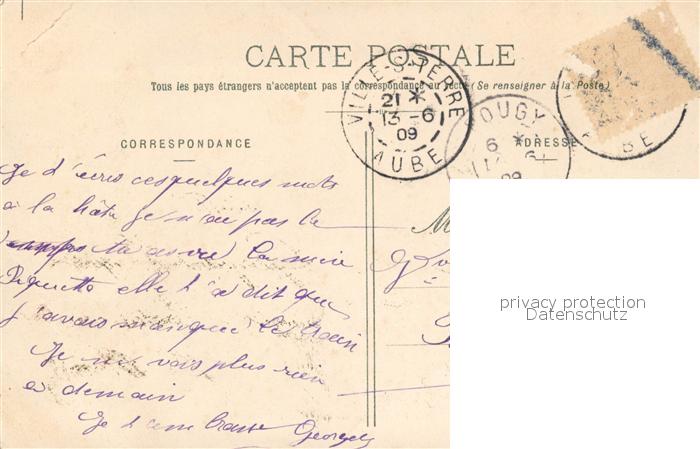 CARTE POSTALE
Tous les pays étrangers n'acceptent pas la correspondance au recto (Se renseigner à la Poste)
VILLE-S-TERRE
21 *
13-6
09
AUBE
OUGY
6 *
6
09
BE
CORRESPONDANCE
ADRESSE
Je t'écris ces quelques mots
à la hâte je n'ai pas le
temps tu as vu la mère
Piquette elle t'a dit que
j'avais manqué le train
Je ne vois plus rien
à demain
Je t'embrasse Georges
M
privacy protection
Datenschutz